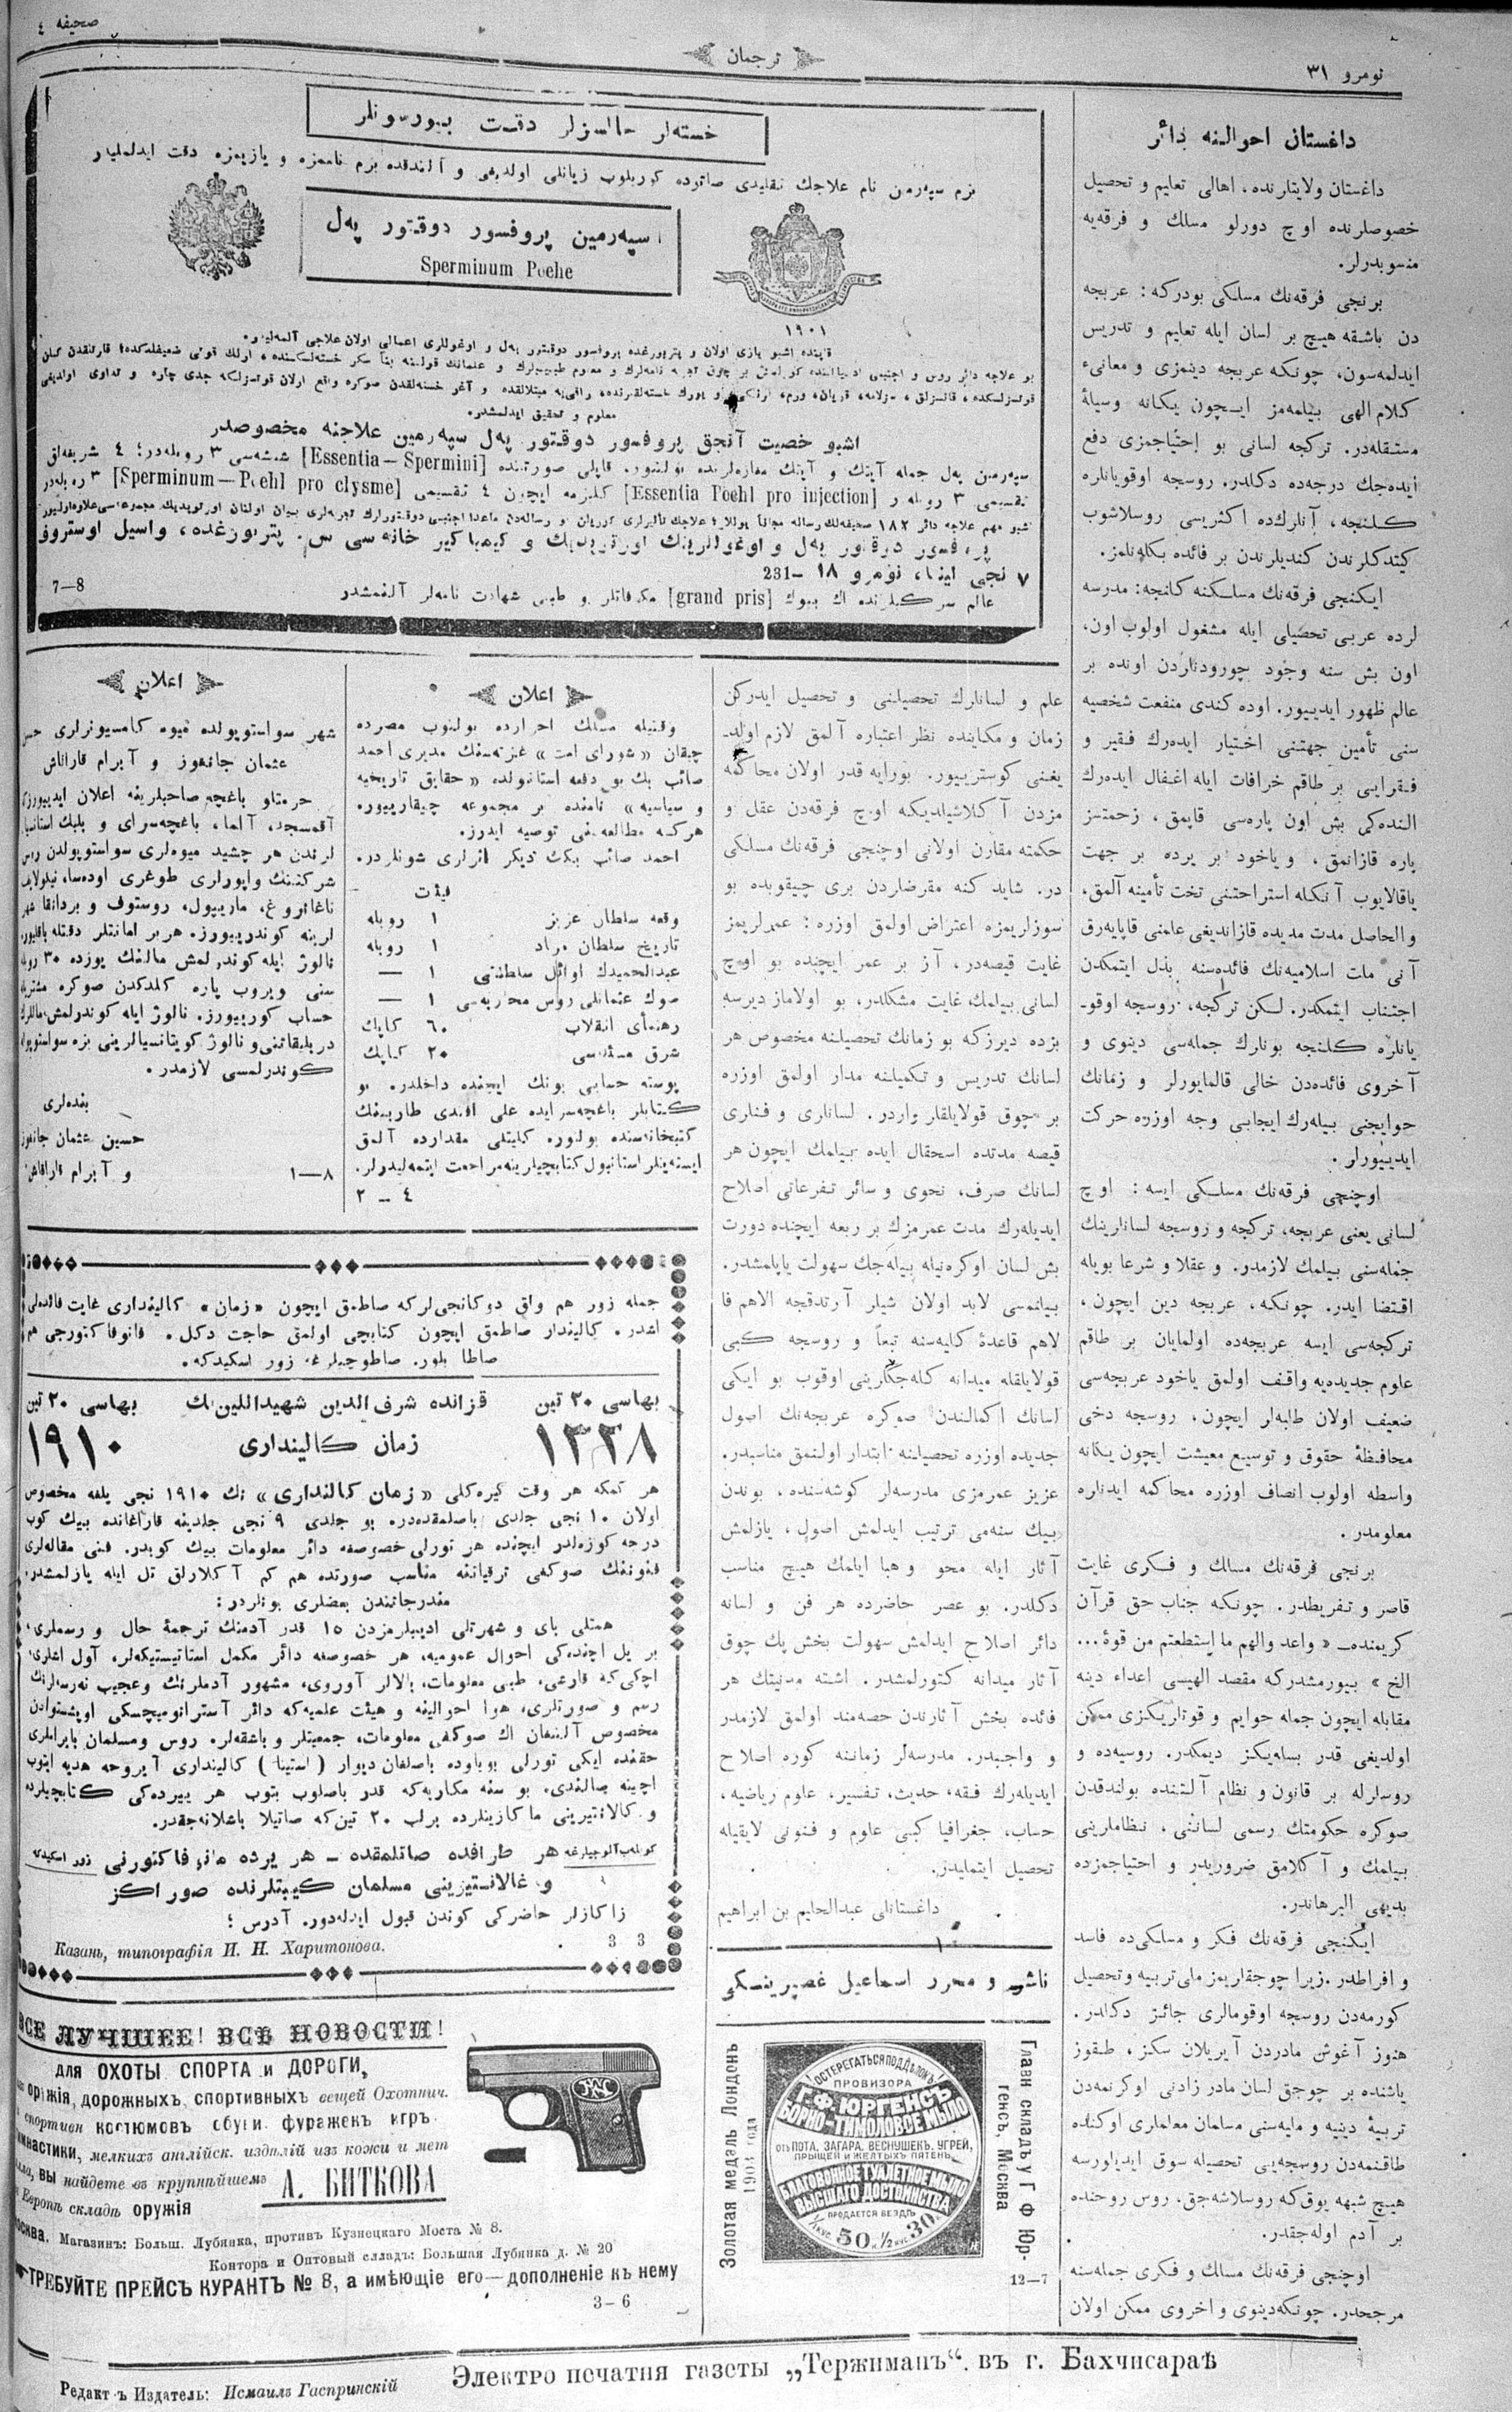 نومرو ٣١
ترجمان
صحيفه ٤
داغستان احوالنه دائر
داغستان ولايتلرنده، اهالى تعليم و تحصيل
خصوصلرنده اوچ دورلو مسلك و فرقه‌يه
منسوبدرلر.
برنجى فرقه‌نك مسلكى بودركه: عربجه
دن باشقه هيچ بر لسان ايله تعليم و تدريس
ايدلمه‌سون، چونكه عربجه دينمزى و معانىء
كلام الهى بيلمه‌مز ايچون يكانه وسيلۀ
مستقله‌در. تركجه لسانى بو احتياجمزى دفع
ايده‌جك درجه‌ده دكلدر. روسجه اوقويانلره
كلنجه، آنلرك‌ده اكثريسى روسلاشوب
كيتدكلرندن كنديلرندن بر فائده بكله‌نلمز.
ايكنجى فرقه‌نك مسلكنه كلنجه: مدرسه
لرده عربى تحصيلى ايله مشغول اولوب اون،
اون بش سنه وجود چوروتدناردن اونده بر
عالم ظهور ايدييور. اوده كندى منفعت شخصيه
سنى تأمين جهتنى اختيار ايده‌رك فقير و
فقرايى بر طاقم خرافات ايله اغفال ايده‌رك
النده‌كى بش اون پاره‌سى قاپمق، زحمتسز
پاره قازانمق، و ياخود بر يرده بر جهت
ياقالايوب آنكله استراحتنى تخت تأمينه آلمق،
والحاصل مدت مديده قازانديغى علمنى قاپايه‌رق
آنى ملت اسلاميه‌نك فائده‌سنه بذل ايتمكدن
اجتناب ايتمكدر. لكن تركجه، روسجه اوقو-
يانلره كلنجه بونلرك جمله‌سى دينوى و
آخروى فائده‌دن خالى قالمايورلر و زمانك
حوايجنى بيله‌رك ايجابى وجه اوزره حركت
ايدييورلر.
اوچنچى فرقه‌نك مسلكى ايسه: اوچ
لسانى يعنى عربجه، تركجه و روسجه لسانلرينك
جمله‌سنى بيلمك لازمدر. و عقلا و شرعا بويله
اقتضا ايدر. چونكه، عربجه دين ايچون،
تركجه‌سى ايسه عربجه‌ده اولمايان بر طاقم
علوم جديده‌يه واقف اولمق ياخود عربجه‌سى
ضعيف اولان طلبه‌لر ايچون، روسجه دخى
محافظۀ حقوق و توسيع معيشت ايچون يكانه
واسطه اولوب انصاف اوزره محاكمه ايدنلره
معلومدر.
برنجى فرقه‌نك مسلك و فكرى غايت
قاصر و تفريطدر. چونكه جناب حق قرآن
كريمنده- « واعد والهم ما إستطعتم من قوة...
الخ » بيورمشدركه مقصد الهيسى اعداء دينه
مقابله ايچون جمله حوايم و قوتلريكزى ممكن
اولديغى قدر بسله‌يكز ديمكدر. روسيه‌ده و
روسلرله بر قانون و نظام آلتنده بولندقدن
صوكره حكومتك رسمى لساننى، نظاملرينى
بيلمك و آكلامق ضروريدر و احتياجمزده
بديهى البرهاندر.
ايكنجى فرقه‌نك فكر و مسلكى‌ده فاسد
و افراطدر. زيرا چوجقلريمز ملى تربيه و تحصيل
كورمه‌دن روسجه اوقومالرى جائز دكلدر.
هنوز آغوش مادردن آيريلان سكز، طقوز
ياشنده بر چوجق لسان مادر زادنى اوكرنمه‌دن
تربيۀ دينيه و مليه‌سنى مسلمان معلملرى اوكنده
طاقنمه‌دن روسجه‌يى تحصيله سوق ايديلورسه
هيچ شبهه يوق‌كه روسلاشه‌جق، روس روحنده
بر آدم اوله‌جقدر.
اوچنجى فرقه‌نك مسلك و فكرى جمله‌سنه
مرجحدر. چونكه‌دينوى و اخروى ممكن اولان
علم و لسانلرك تحصيلنى و تحصيل ايدركن
زمان و مكاننده نظر اعتباره آلمق لازم اولد-
يغنى كوسترييور. بورايه قدر اولان محاكمه
مزدن آكلاشيلديكه اوچ فرقه‌دن عقل و
حكمته مقارن اولانى اوچنجى فرقه‌نك مسلكى
در. شايد كنه مقرضلردن برى چيقوبده بو
سوزلريمزه اعتراض اولمق اوزره: عمرلريمز
غايت قيصه‌در، آز بر عمر ايچنده بو اوچ
لسانى بيلمك غايت مشكلدر، بو اولاماز ديرسه
بزده ديرزكه بو زمانك تحصيلنه مخصوص هر
لسانك تدريس و تكميلنه مدار اولمق اوزره
بر چوق قولايلقلر واردر. لسانلرى و فنلرى
قيصه مدتده استحقال ايده بيلمك ايچون هر
لسانك صرف، نحوى و سائر تفرعاتى اصلاح
ايديله‌رك مدت عمرمزك بر ربعه ايچنده دورت
بش لسان اوكره‌نيله بيله‌جك سهولت ياپلمشدر.
بيانمسى لابد اولان شيلر آرتدقجه الاهم فا
لاهم قاعدۀ كليه‌سنه تبعاً و روسجه كبى
قولايلقله ميدانه كله‌جكلرينى اوقوب بو ايكى
لسانك اكمالندن صوكره عربجه‌نك اصول
جديده اوزره تحصيلنه ابتدار اولنمق مناسبدر.
عزيز عمرمزى مدرسه‌لر كوشه‌سنده، بوندن
بيك سنه‌مى ترتيب ايدلمش اصول، يازلمش
آثار ايله محو و هبا ايلمك هيچ مناسب
دكلدر. بو عصر حاضرده هر فن و لسانه
دائر اصلاح ايدلمش سهولت بخش پك چوق
آثار ميدانه كتورلمشدر. اشته مدنيتك هر
فائده بخش آثارندن حصه‌مند اولمق لازمدر
و واجبدر. مدرسه‌لر زماننه كوره اصلاح
ايديله‌رك فقه، حديث، تفسير، علوم رياضيه،
حساب، جغرافيا كبى علوم و فنونى لايقيله
تحصيل ايتمليدر.
داغستانلى عبدالحليم بن ابراهيم
ناشر و محرر اسماعيل غصپرينسكى
خسته‌لر حالسزلر دقت بيورسونلر
بزم سپه‌رمين نام علاجك تقليدى صاتوده كوريلوب زيانلى اولديغى و آلندقده بزم نامه‌مزه و يازيمزه دقت ايدلمليدر
سپه‌رمين پروفسور دوقتور پەل
Sperminum Poehe
١٩٠١
اشبو خصيت آنجق پروفسور دوقتور پەل سپه‌رمين علاجنه مخصوصدر
[Essentia—Spermini]
[Essentia Poehl pro injection]
[Sperminum—Poehl pro clysme]
٧ نجى لينيا، نومرو ١٨ –231
[grand pris]
7—8
اعلان
وقتيله مسلك احرارده بولنوب مصرده
چيقان «شوراى امت» غزته‌سنك مديرى احمد
صائب بك بو دفعه استانبولده «حقايق تاريخيه
و سياسيه» نامنده بر مجموعه چيقارييور.
هركسه مطالعه‌سنى توصيه ايدرز.
احمد صائب بكك ديكر اثرلرى شونلردر.
فيئت
وقعه سلطان عزيز ١ روبله
تاريخ سلطان مراد ١ روبله
عبدالحميدك اوائل سلطنتى ١ —
صوك عثمانلى روس محاربه‌سى ١ —
رهنماى انقلاب ٦٠ كاپك
شرق مسئله‌سى ٢٠ كاپك
پوسته حسابى بونك ايچنده داخلدر. بو
كتابلر باغچه‌سرايده على افندى طارپىنك
كتبخانه‌سنده بولنور. كليتلى مقدارده آلمق
ايسته‌ينلر استانبول كتابچيلرينه مراجعت ايتمه‌ليدرلر.
٤ – ٢
اعلان
شهر سواستوپولده ميوه كامسيونرلرى حسين
عثمان جانغوز و آبرام قاراقاش
حرمتلو باغچه صاحبلرينه اعلان ايدييورز
آقمسجد، آلما، باغچه‌سراى و بلبك استانسيا
لرندن هر چشيد ميوه‌لرى سواستوپولدن روس
شركتنك واپورلرى طوغرى اوده‌سا، نيقولايف
تاغانروغ، ماريپول، روستوف و بردانقا شهر
لرينه كوندرييورز.
كوندرلمسى لازمدر.
بنده‌لرى
حسين عثمان جانغوز
و آبرام قاراقاش
٨—١
جمله زور هم واق دوكانجى‌لركه صاطمق ايچون «زمان» كاليندارى غايت فائده‌لى
اشدر. كاليندار صاطمق ايچون كتابچى اولمق حاجت دكل. مانوفاكتورجى هم
صاطا بلور. صاطوچيلرغه زور اسكيدكه.
بهاسى ٢٠ تين
قزانده شرف الدين شهيداللين‌نك
بهاسى ٢٠ تين
١٣٢٨
زمان كاليندارى
١٩١٠
هر كمكه هر وقت كيره‌كلى «زمان كالندارى» نك ١٩١٠ نجى يلغه مخصوص
اولان ١٠ نجى جلدى باصلمقده‌در. بو جلدى ٩ نجى جلدينه قاراغانده بيك كوب
درجه كوزه‌لدر ايچنده هر تورلى خصوصغه دائر معلومات بيك كوبدر. فنى مقاله‌لرى
فنوننك صوكغى ترقياتنه مناسب صورتده هم كم آكلارلق تل ايله يازلمشدر.
مندرجاتندن بعضلرى بونلردر:
همتلى باى و شهرتلى اديبلرمزدن ١٥ قدر آدمنك ترجمۀ حال و رسملرى،
بر يل اچنده‌كى احوال عموميه، هر خصوصغه دائر مكمل استاتيستيكه‌لر، آول اشلرى،
اچكى‌كه قارغى، طبى معلومات، بالالر آوروى، مشهور آدملرنك و عجيب نه‌رسه‌لرنك
رسم و صورتلرى، هوا احوالينه و هيئت علميه‌كه دائر آسترانوميچسكى اوبشتوادن
مخصوص آلنغان اك صوكغى معلومات، جمعيتلر و باشقه‌لر. روس و مسلمان بايراملرى
حقنده ايكى تورلى بوياوده باصلغان ديوار (استينا) كاليندارى آيروچه هديه ايتوب
اچينه صالندى. بو سنه مكاريه‌كه قدر باصلوب بتوب هر ييرده‌كى كتابچيلرده
و گالانتيرينى ماگازينلرده برلب ٢٠ تين‌كه صاتيلا باشلانه‌جقدر.
كوبلەب آلوچيلرغه هر طرافده صاتلمقده – هر يرده مانوفاكتورنى زور اسكيدكه
و غالانتيرينى مسلمان كيبتلرنده صوراكز
زاكازلر حاضركى كوندن قبول ايدله‌دور. آدرس؛
Казань, типографія И. Н. Харитонова.
3 3
ВСЕ ЛУЧШЕЕ! ВСѢ НОВОСТИ!
для ОХОТЫ СПОРТА и ДОРОГИ,
оружія, дорожныхъ, спортивныхъ вещей Охотнич.
спортивн костюмовъ обуви, фуражекъ игръ.
мнастики, мелкихъ англійск. издѣлій изъ кожи и мет
вы найдете въ крупнѣйшемъ
Европѣ складѣ оружія
А. БИТКОВА
Москва. Магазинъ: Больш. Лубянка, противъ Кузнецкаго Моста № 8.
Контора и Оптовый складъ: Большая Лубянка д. № 20
ТРЕБУЙТЕ ПРЕЙСЪ КУРАНТЪ № 8, а имѣющіе его—дополненіе къ нему
3–6
Золотая медаль Лондонъ
1903 года
ОСТЕРЕГАТЬСЯ ПОДДѢЛОКЪ
ПРОВИЗОРА
Г.Ф. ЮРГЕНСЪ
БОРНО-ТИМОЛОВОЕ МЫЛО
отъ ПОТА, ЗАГАРА, ВЕСНУШЕКЪ, УГРЕЙ,
ПРЫЩЕЙ И ЖЕЛТЫХЪ ПЯТЕНЪ
БЛАГОВОННОЕ ТУАЛЕТНОЕ МЫЛО
ВЫСШАГО ДОСТОИНСТВА
ПРОДАЕТСЯ ВЕЗДѢ
1 кус. 50 к. 1/2 кус. 30 к.
Главн складъ у Г Ф Юр-
генсъ, Москва
12—7
Электро печатня газеты „Тержиманъ“. въ г. Бахчисараѣ
Редакт ъ Издатель: Исмаилъ Гаспринскій